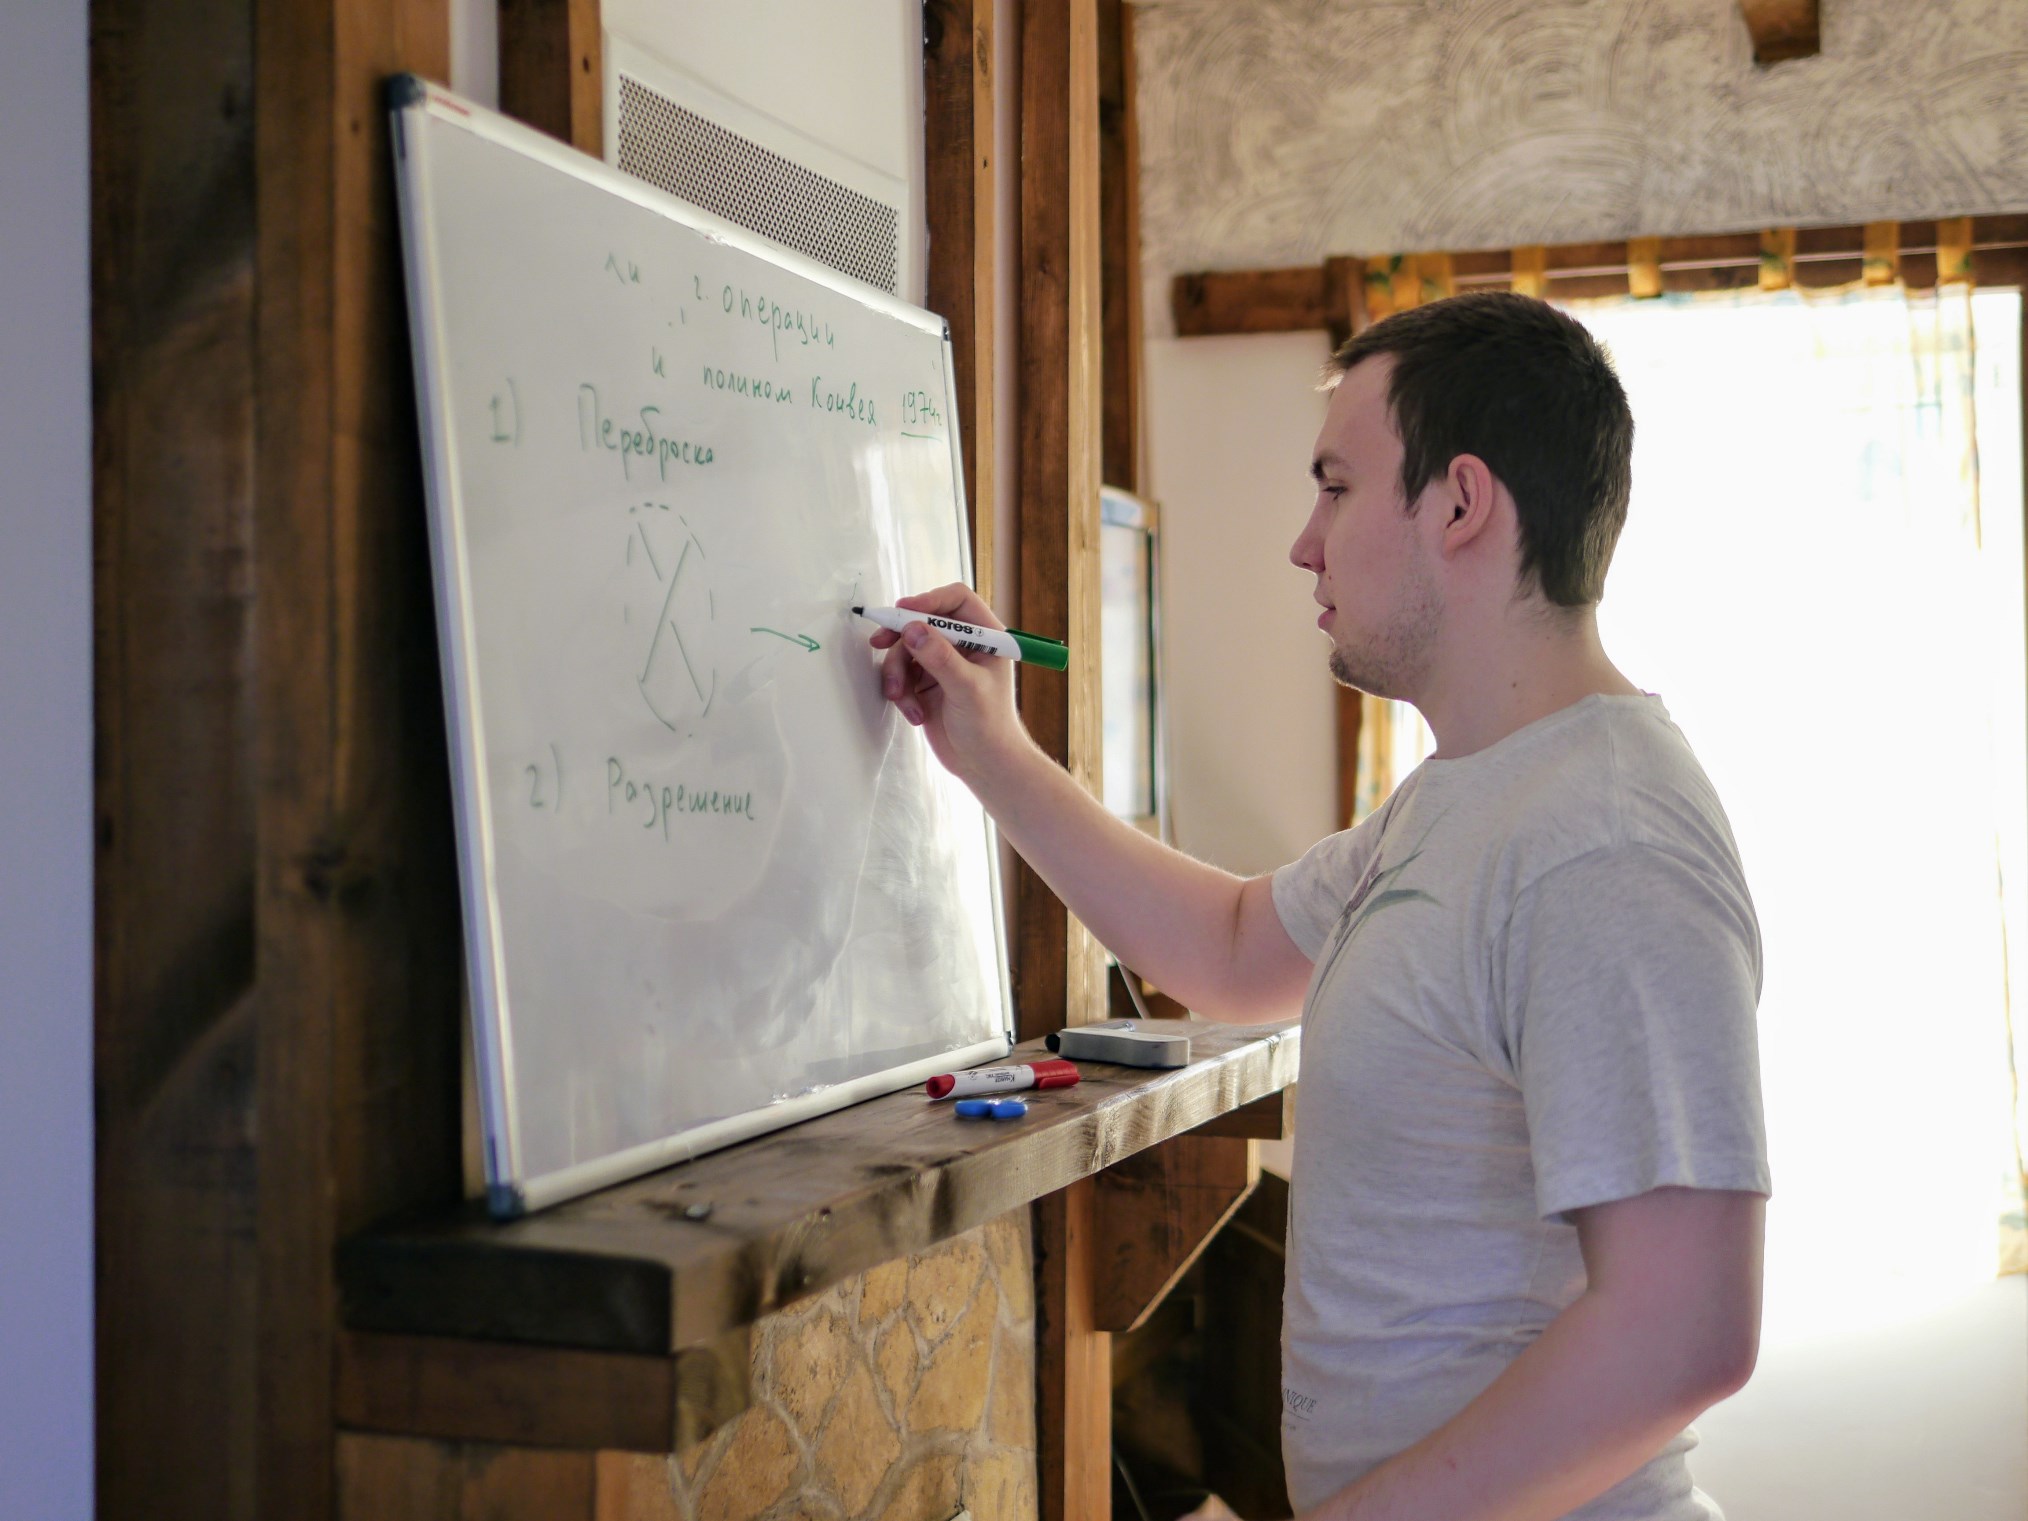 2. операции
и полином Конвея 1974г
1) Переброска
2) Разрешение
kores
NIQUE